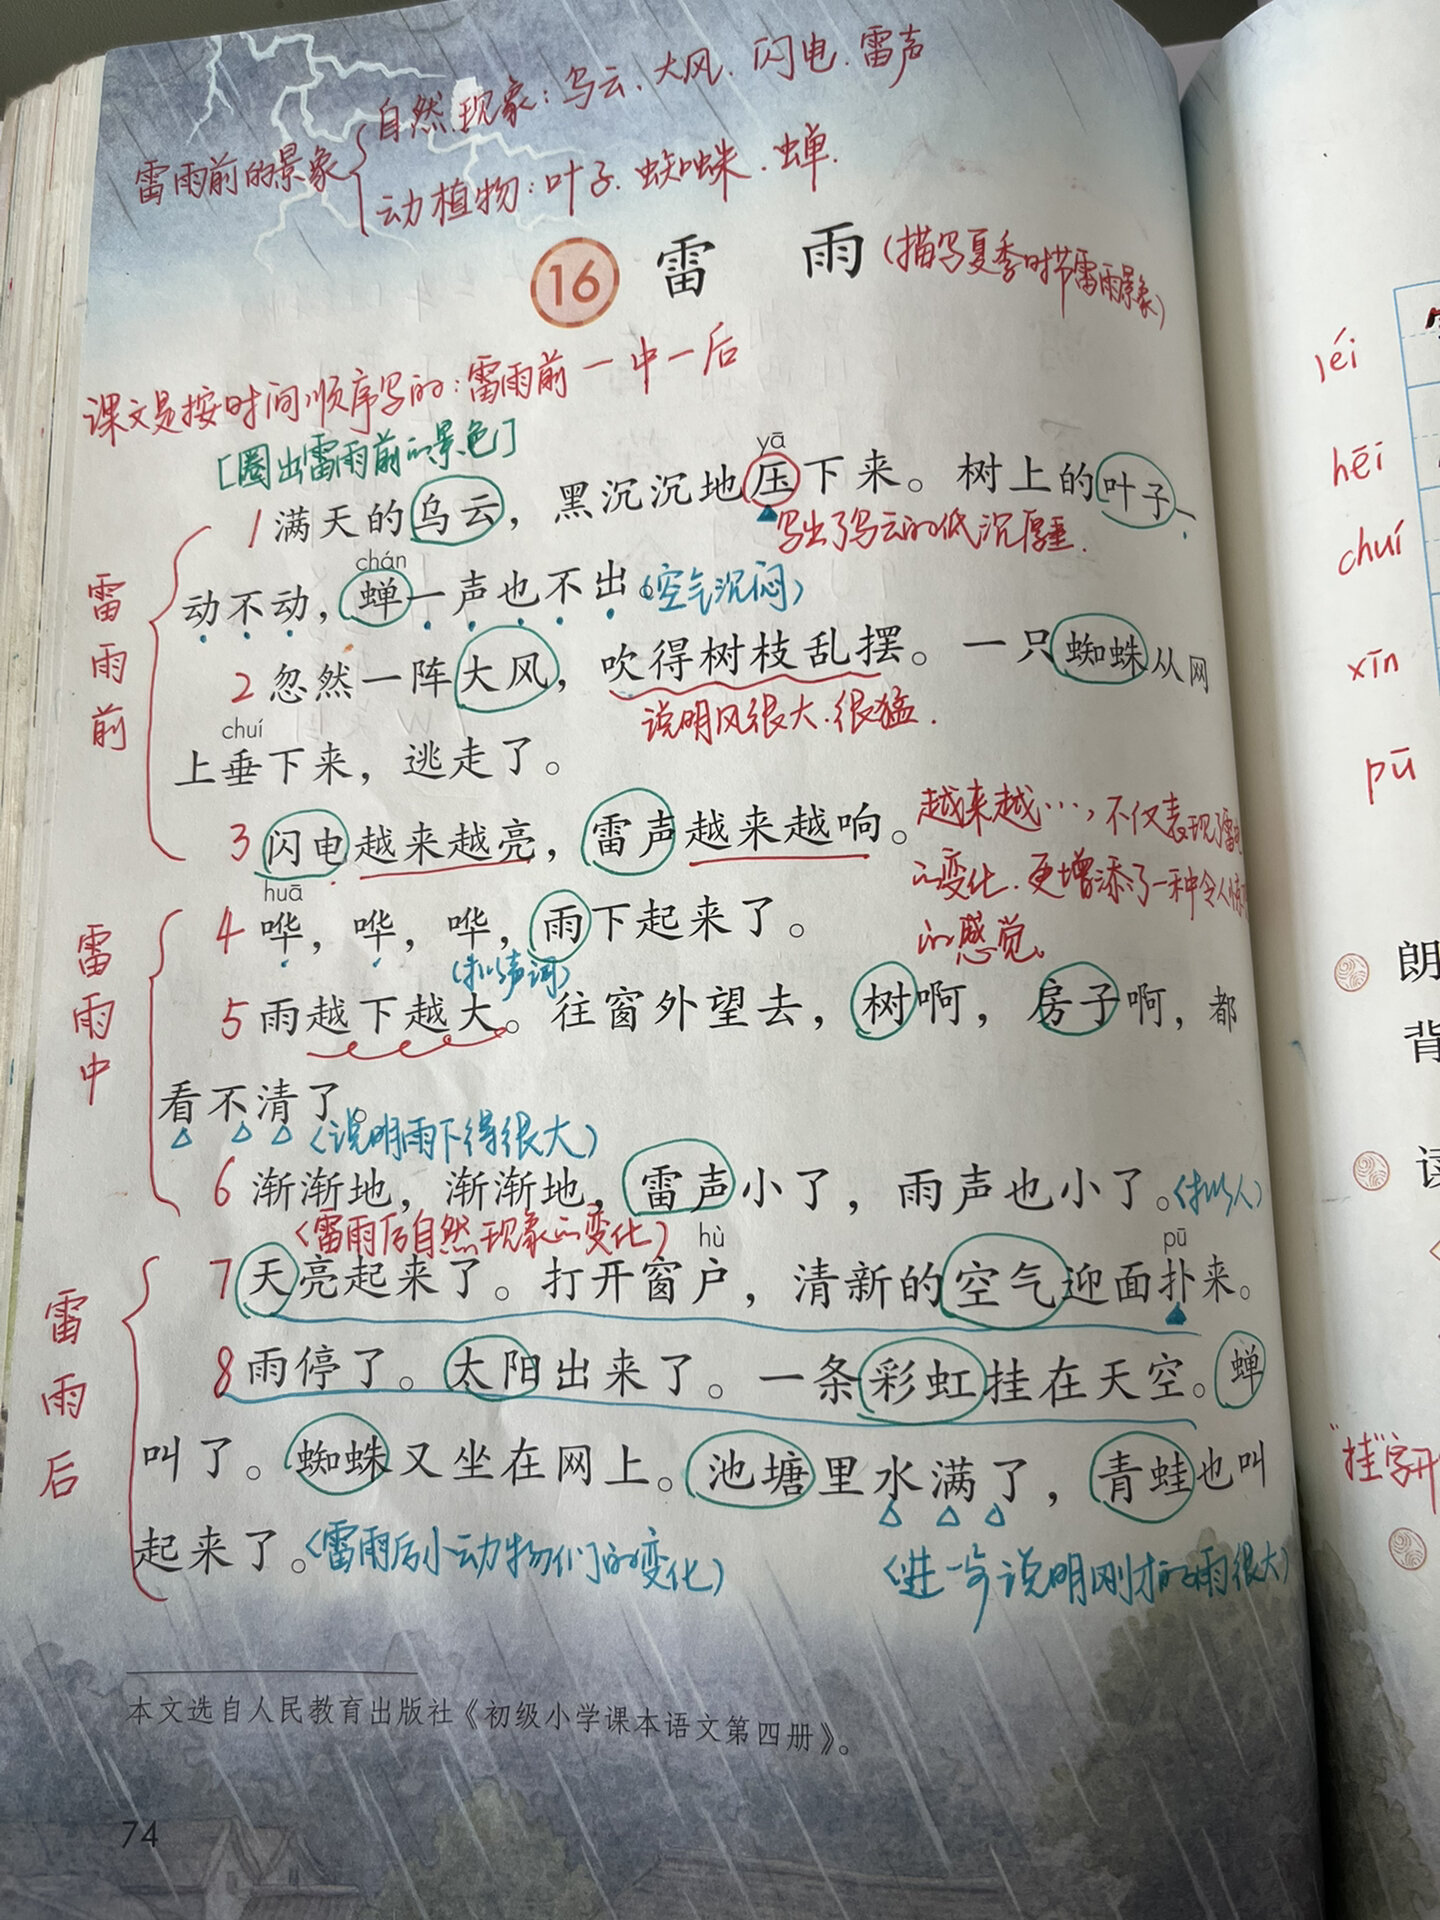 雷雨前的景象
自然现象：乌云、大风、闪电、雷声
动植物：叶子、蜘蛛、蝉.
16 雷 雨（描写夏季时节雷雨景象）
课文是按时间顺序写的：雷雨前一中一后
[圈出雷雨前的景色]
yā
1 满天的乌云，黑沉沉地压下来。树上的叶子一
写出了乌云的低沉厚重.
chán
动不动，蝉一声也不出。（空气沉闷）
雷雨前
2 忽然一阵大风，吹得树枝乱摆。一只蜘蛛从网
说明风很大.很猛.
chuí
上垂下来，逃走了。
3 闪电越来越亮，雷声越来越响。
越来越…，不仅表现了雷电
的变化.更增添了一种令人惊
的感觉。
huā
4 哗，哗，哗，雨下起来了。
（拟声词）
雷雨中
5 雨越下越大。往窗外望去，树啊，房子啊，都
看不清了。
（说明雨下得很大）
6 渐渐地，渐渐地，雷声小了，雨声也小了。（拟人）
（雷雨后自然现象的变化）
hù
pū
7 天亮起来了。打开窗户，清新的空气迎面扑来。
雷雨后
8 雨停了。太阳出来了。一条彩虹挂在天空。蝉
叫了。蜘蛛又坐在网上。池塘里水满了，青蛙也叫
起来了。（雷雨后小动物们的变化）
（进一步说明刚才的雨很大）
本文选自人民教育出版社《初级小学课本语文第四册》。
74
léi
hēi
chuí
xīn
pū
朗
背
读
"挂"字开